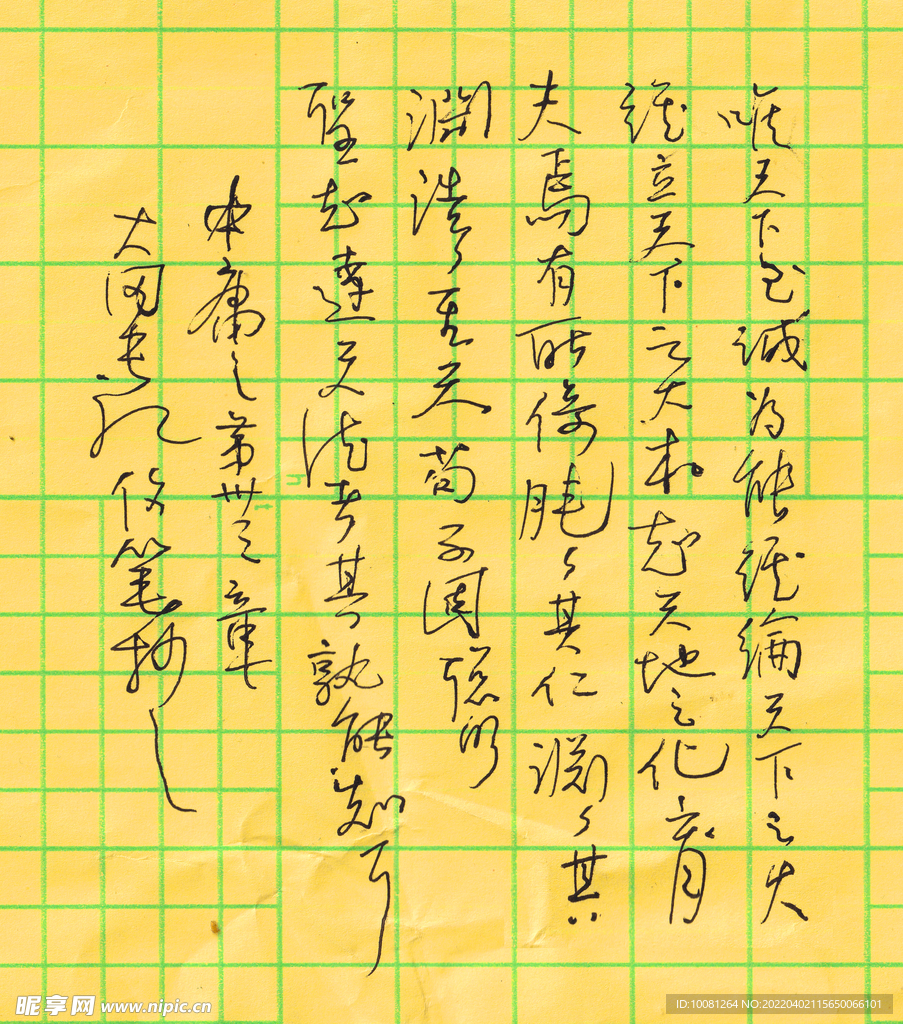 唯天下至誠為能經綸天下之大
經立天下之大本知天地之化育
夫焉有所倚肫々其仁淵々其
淵浩々其天苟不固聰明
聖知達天德者其孰能知
中庸之第卅二章
大 筆抄
昵享网 www.nipic.cn
ID:10081264 NO:20220402115650066101